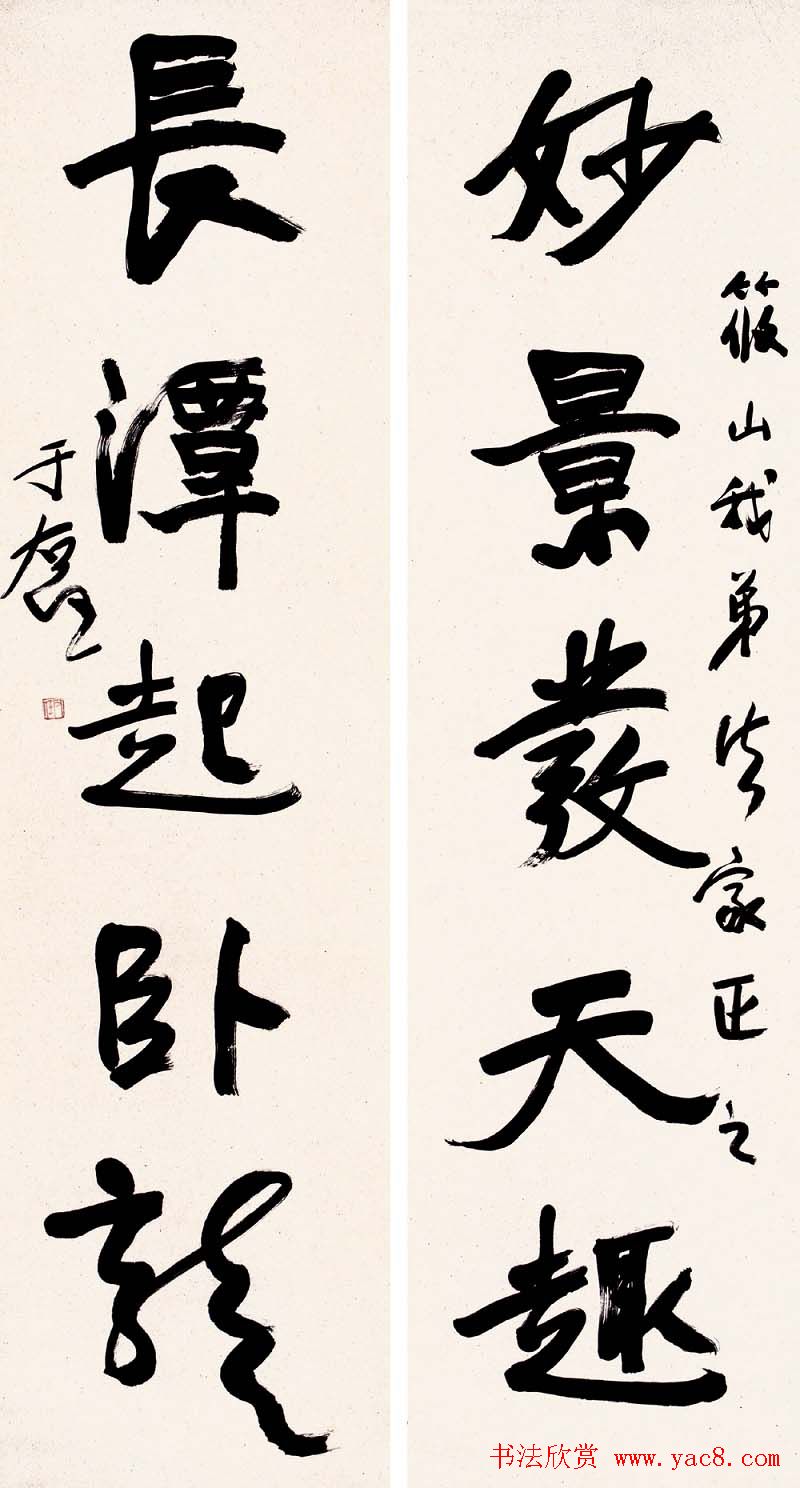 妙景發天趣
筱山我弟法家正之
長潭起卧龍
于右任
书法欣赏 www.yac8.com